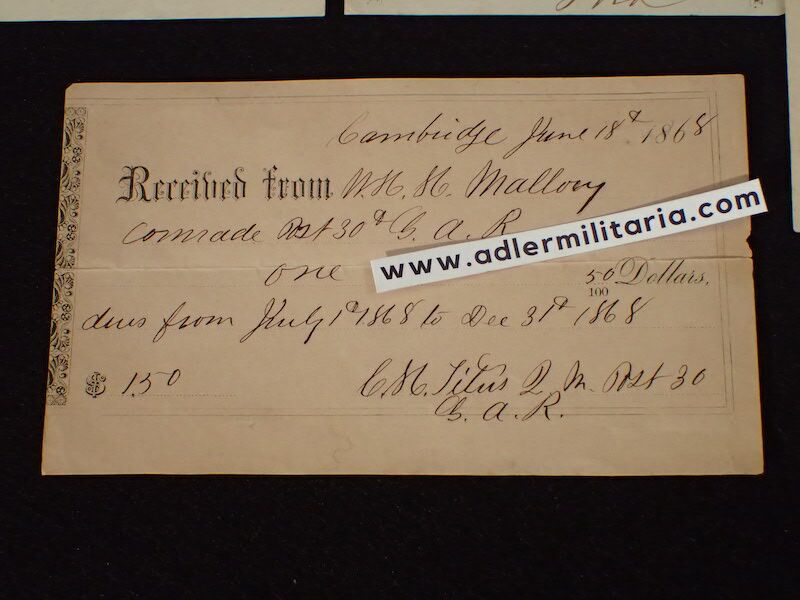 Cambridge June 18th 1868
Received from W. H. H. Mallory
Comrade Post 30th G. A. R
one 50/100 Dollars,
www.adlermilitaria.com
dues from July 1st 1868 to Dec 31st 1868
$ 1.50 C. H. Titus Q. M. Post 30
G. A. R.